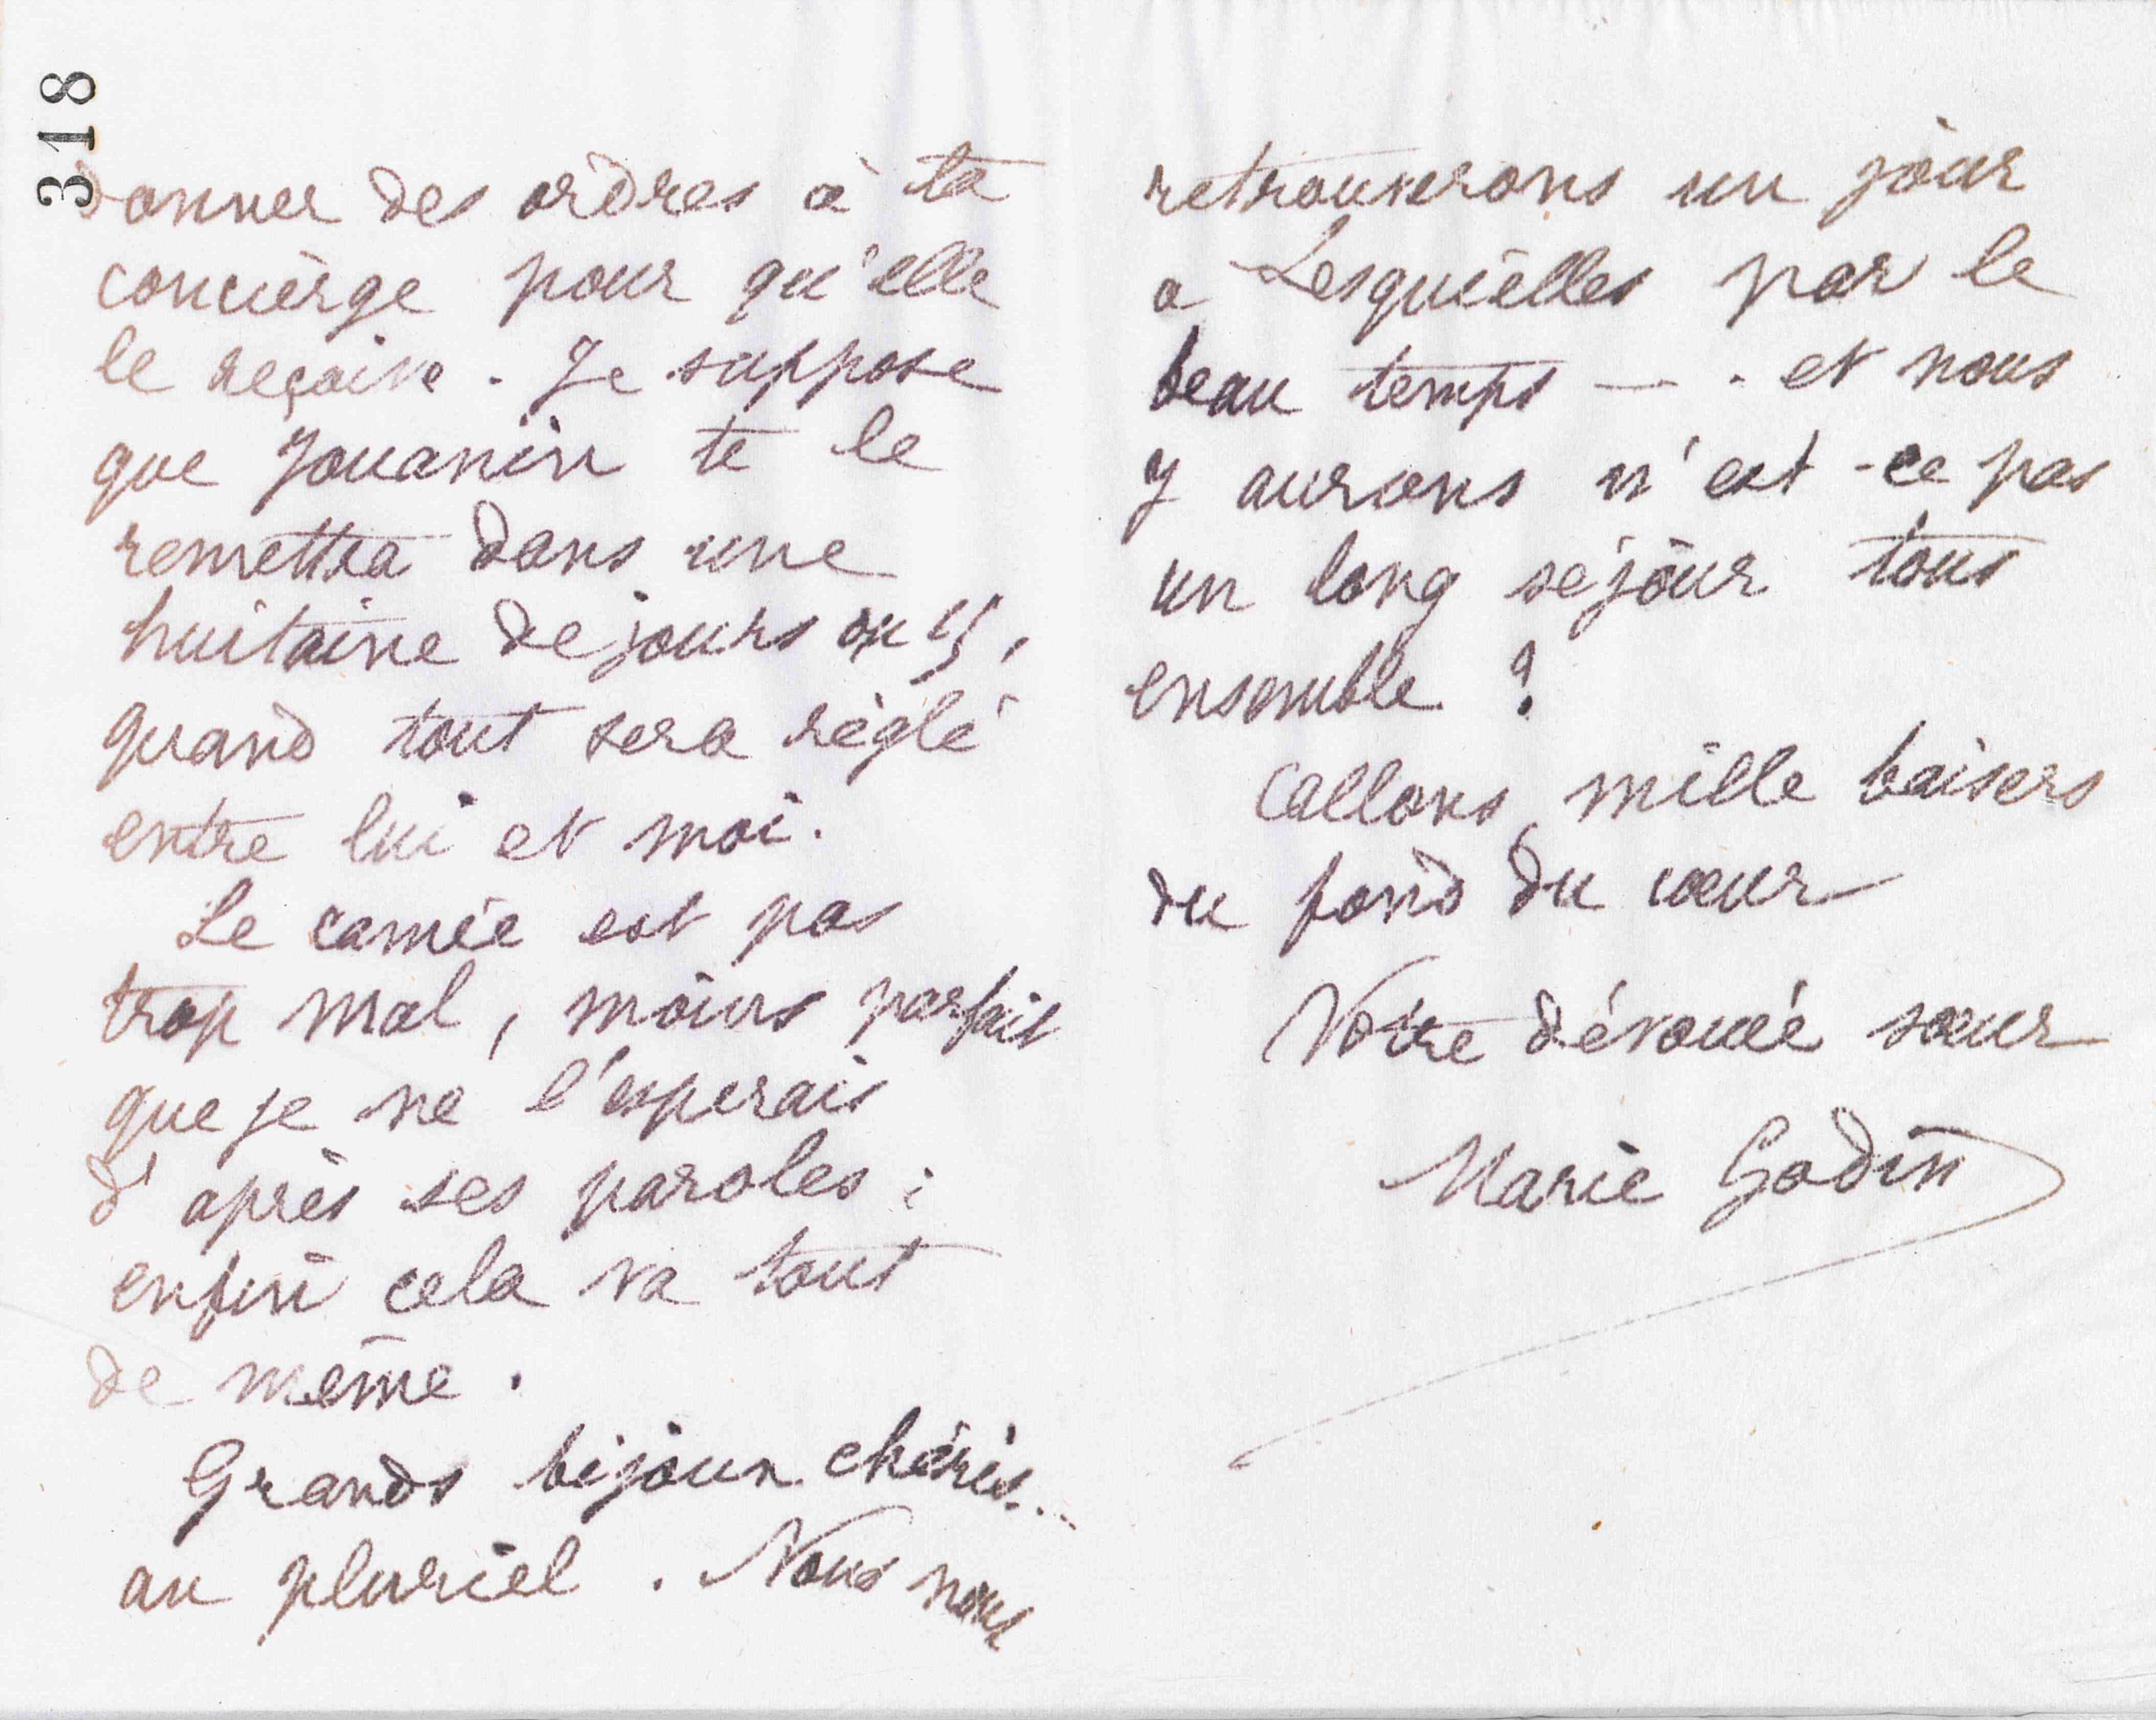 318
donner des ordres à ta
concierge pour qu'elle
le reçoive. Je suppose
que Jouanin te le
remettra dans une
huitaine de jours ou 15,
quand tout sera réglé
entre lui et moi.
Le camée est pas
trop mal, moins parfait
que je ne l'esperais
d'après ses paroles ;
enfin cela va tout
de même.
Grands bijoux chéris...
au pluriel. Nous nous
retrouverons un jour
a Lesquielles par le
beau temps — . et nous
y aurons n'est-ce pas
un long séjour tous
ensemble ?
Callons, mille baisers
du fond du cœur
Votre dévouée sœur
Marie Godin